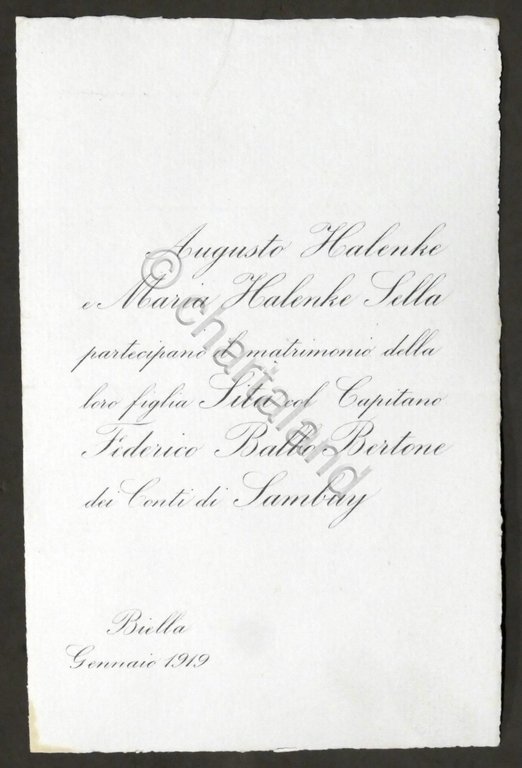 Augusto Halenke
e Maria Halenke Sella
partecipano il matrimonio della
loro figlia Sila col Capitano
Federico Balbo Bertone
dei Conti di Sambuy
Biella
Gennaio 1919
© chartaland